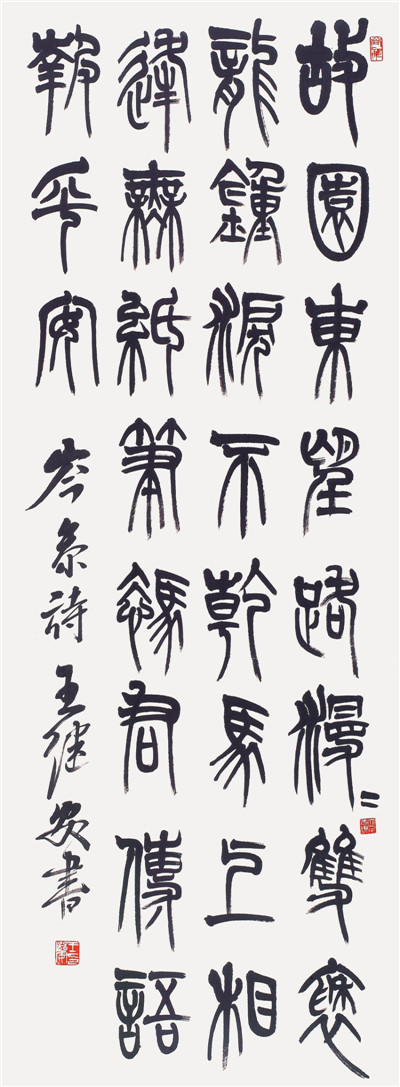 故園東望路漫〻雙褎
龍鍾淚不乾馬上相
逢無紙筆憑君傳語
報平安
岑參詩 王継安書